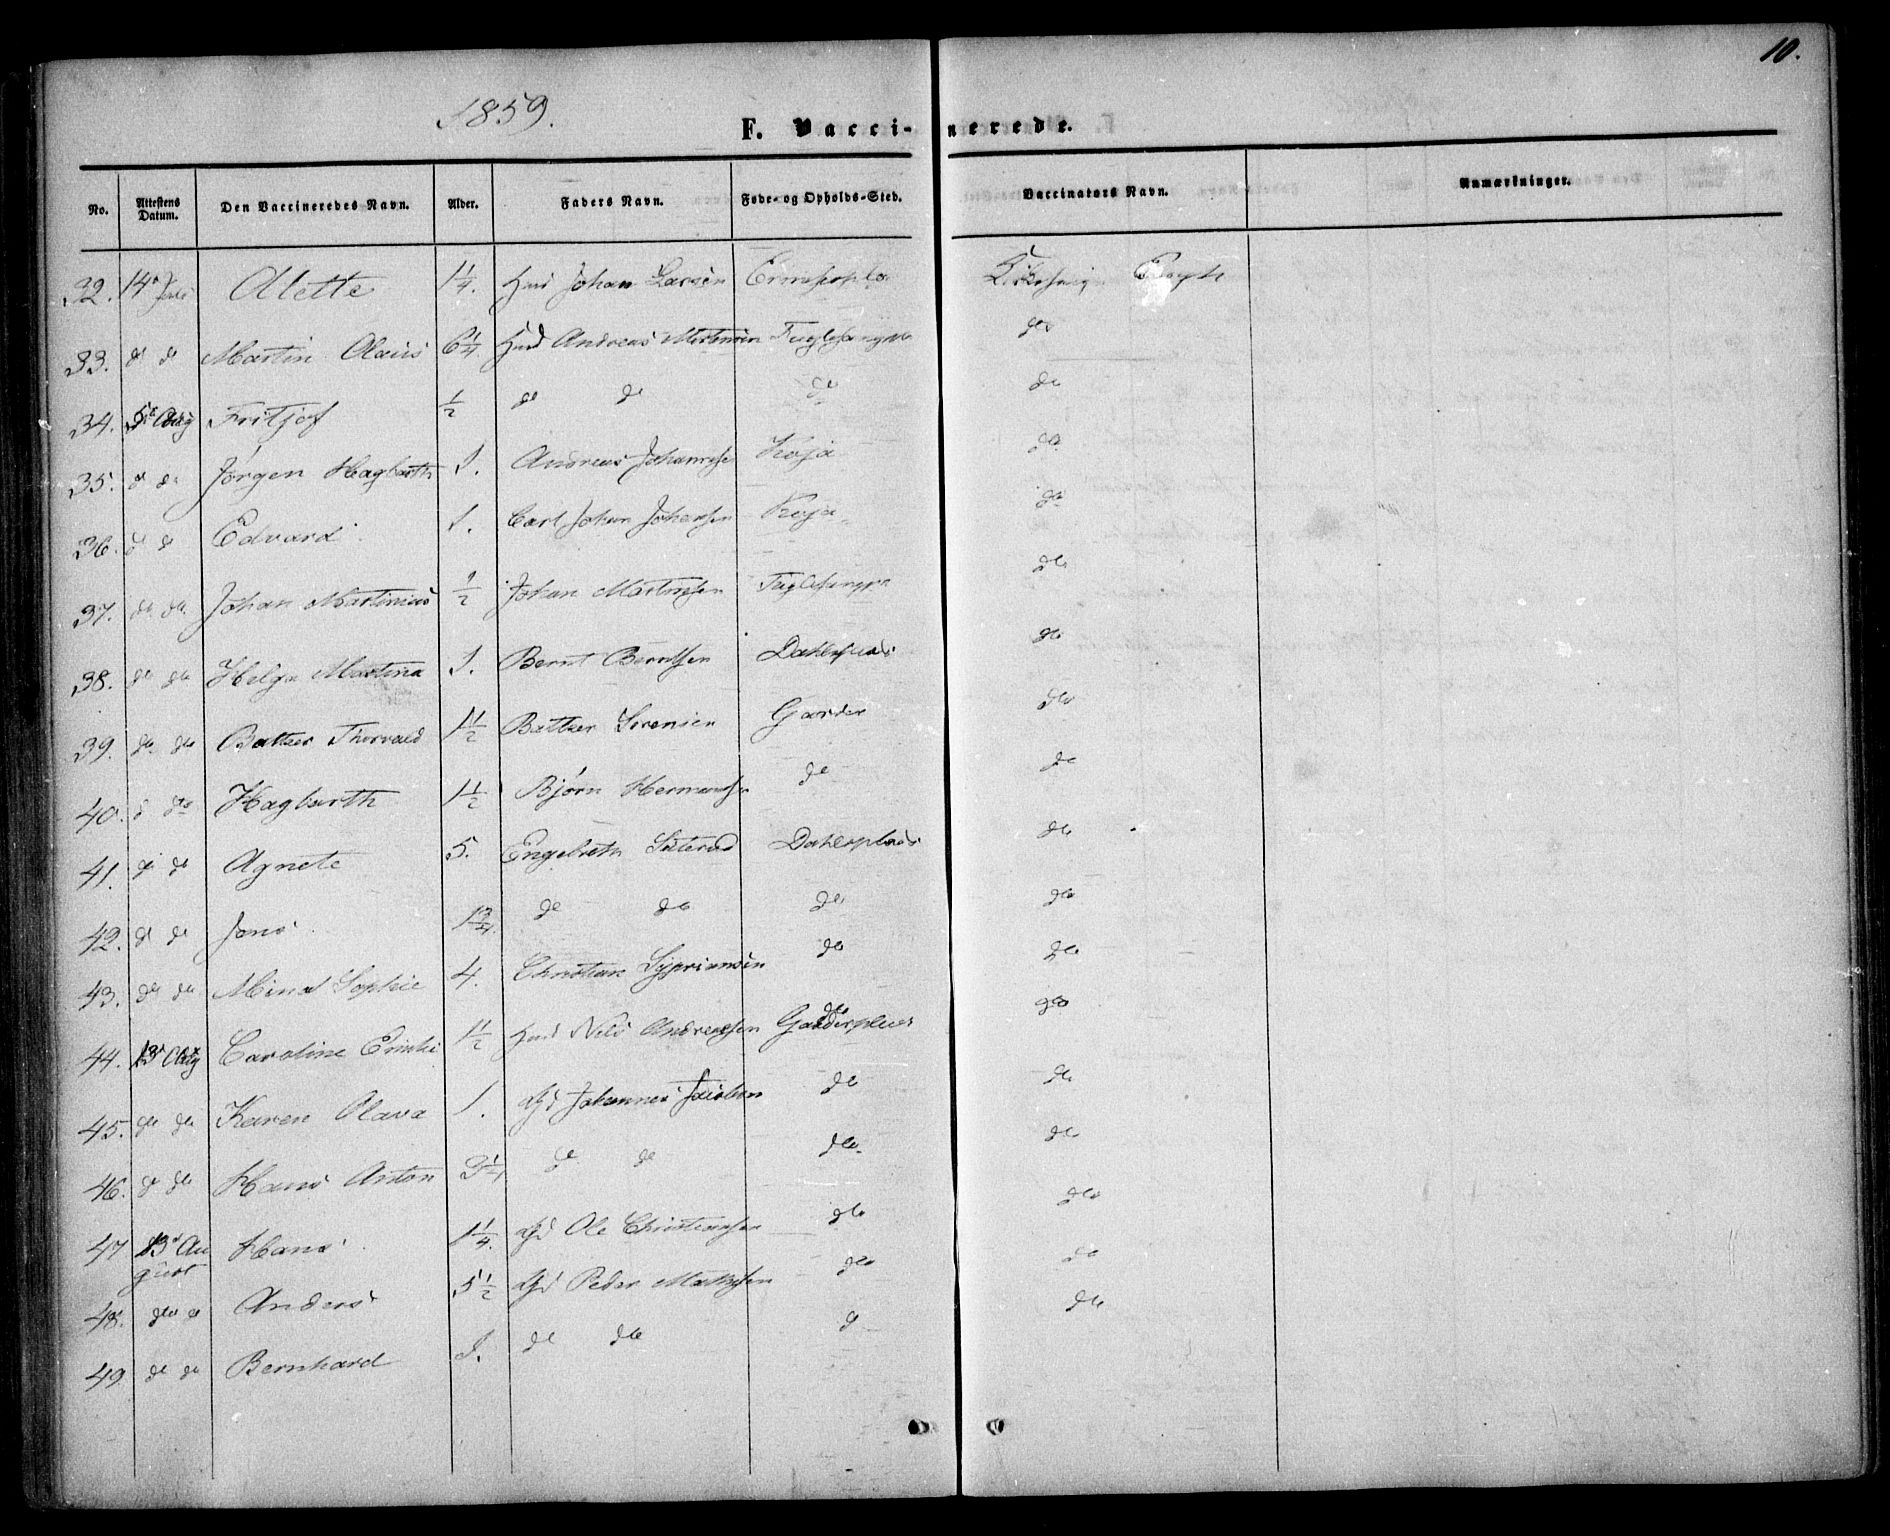 10.
1859.
F. Vaccinerede.
No. Attestens Datum. Den Vaccineredes Navn. Alder. Faders Navn. Føde- og Opholds-Sted. Vaccinators Navn. Anmærkninger.
32. 14de Juli Alette 1 1/4. Huusmd Johan Larsen
33. do do Martin Olaus 6 1/4 Huusmd Andreas Mortensen do
34. 5te Aug Fritjof 1/2 do do do do
35. do do Jørgen Hagbarth 1. Andreas Johannesen Koja do
36. do do Edvard 1. Carl Johan Johansen Koja do
37. do do Johan Martinius 1/2 Johan Martinsen do
38. do do Helga Martina 1. Bernt Berntsen Dahlsplads do
39. do do Baltzer Thorvald 1 1/2 Baltzer Sørensen Garder do
40. do do Hagbarth 1 1/2 Bjørn Hermansen do do
41. do do Agnete 5. Engebreth Dahlsplads do
42. do do Jens 1 3/4. do do do do
43. do do Mina Sophie 4. Christian Sypriansen do do
44. 13de Aug Caroline Emilie 1 1/2 Huusmd Nils Andreassen Garderplads do
45. do do Karen Olava 1. Johannes Jacobsen do do
46. do do Hans Anton 3 1/4 do do do do
47 13de Au Hans 1 1/4. Ole Christiansen do do
gust
48. do do Anders 5 1/2 Peder Mathisen do do
49 do do Bernhard 1. do do do do